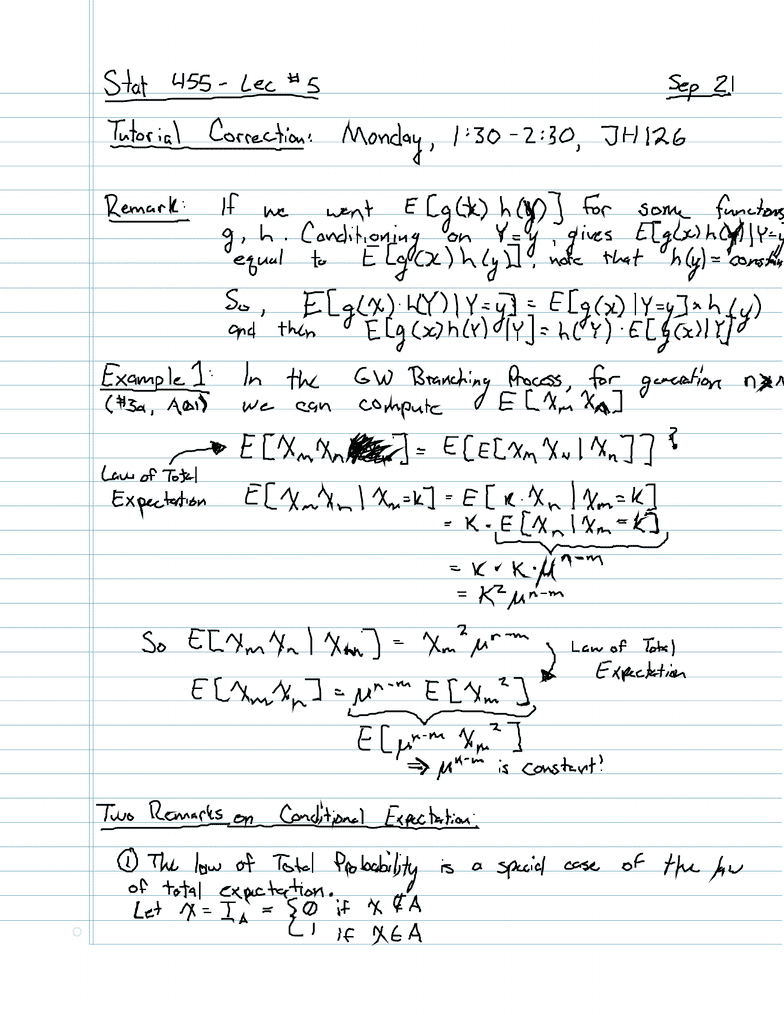 Stat 455 - Lec #5 Sep 21
Tutorial Correction: Monday, 1:30-2:30, JH126
Remark: If we want E[g(x) h(Y)] for some functions
g, h. Conditioning on Y=y, gives E[g(x)h(Y)|Y=y
equal to E[g(x)h(y)], note that h(y) = constan
So, E[g(X)·h(Y)|Y=y] = E[g(x)|Y=y]×h(y)
and then E[g(x)h(Y)|Y] = h(Y)·E[g(x)|Y]
Example 1: In the GW Branching Process, for generation n>m
(#3a, A01) we can compute E[Xm Xn]
E[XmXn] = E[E[XmXn|Xn]] ?
Law of Total
Expectation E[XmXn|Xm=k] = E[k·Xn|Xm=k]
= k·E[Xn|Xm=k]
= k·k·μ^n-m
= k² μ^n-m
So E[XmXn|Xm] = Xm² μ^n-m Law of Total
Expectation
E[XmXn] = μ^n-m E[Xm²]
E[μ^n-m Xm²]
⇒ μ^n-m is constant!
Two Remarks on Conditional Expectation:
① The law of Total Probability is a special case of the law
of total expectation.
Let X = I_A = {0 if X ∉ A
1 if X ∈ A